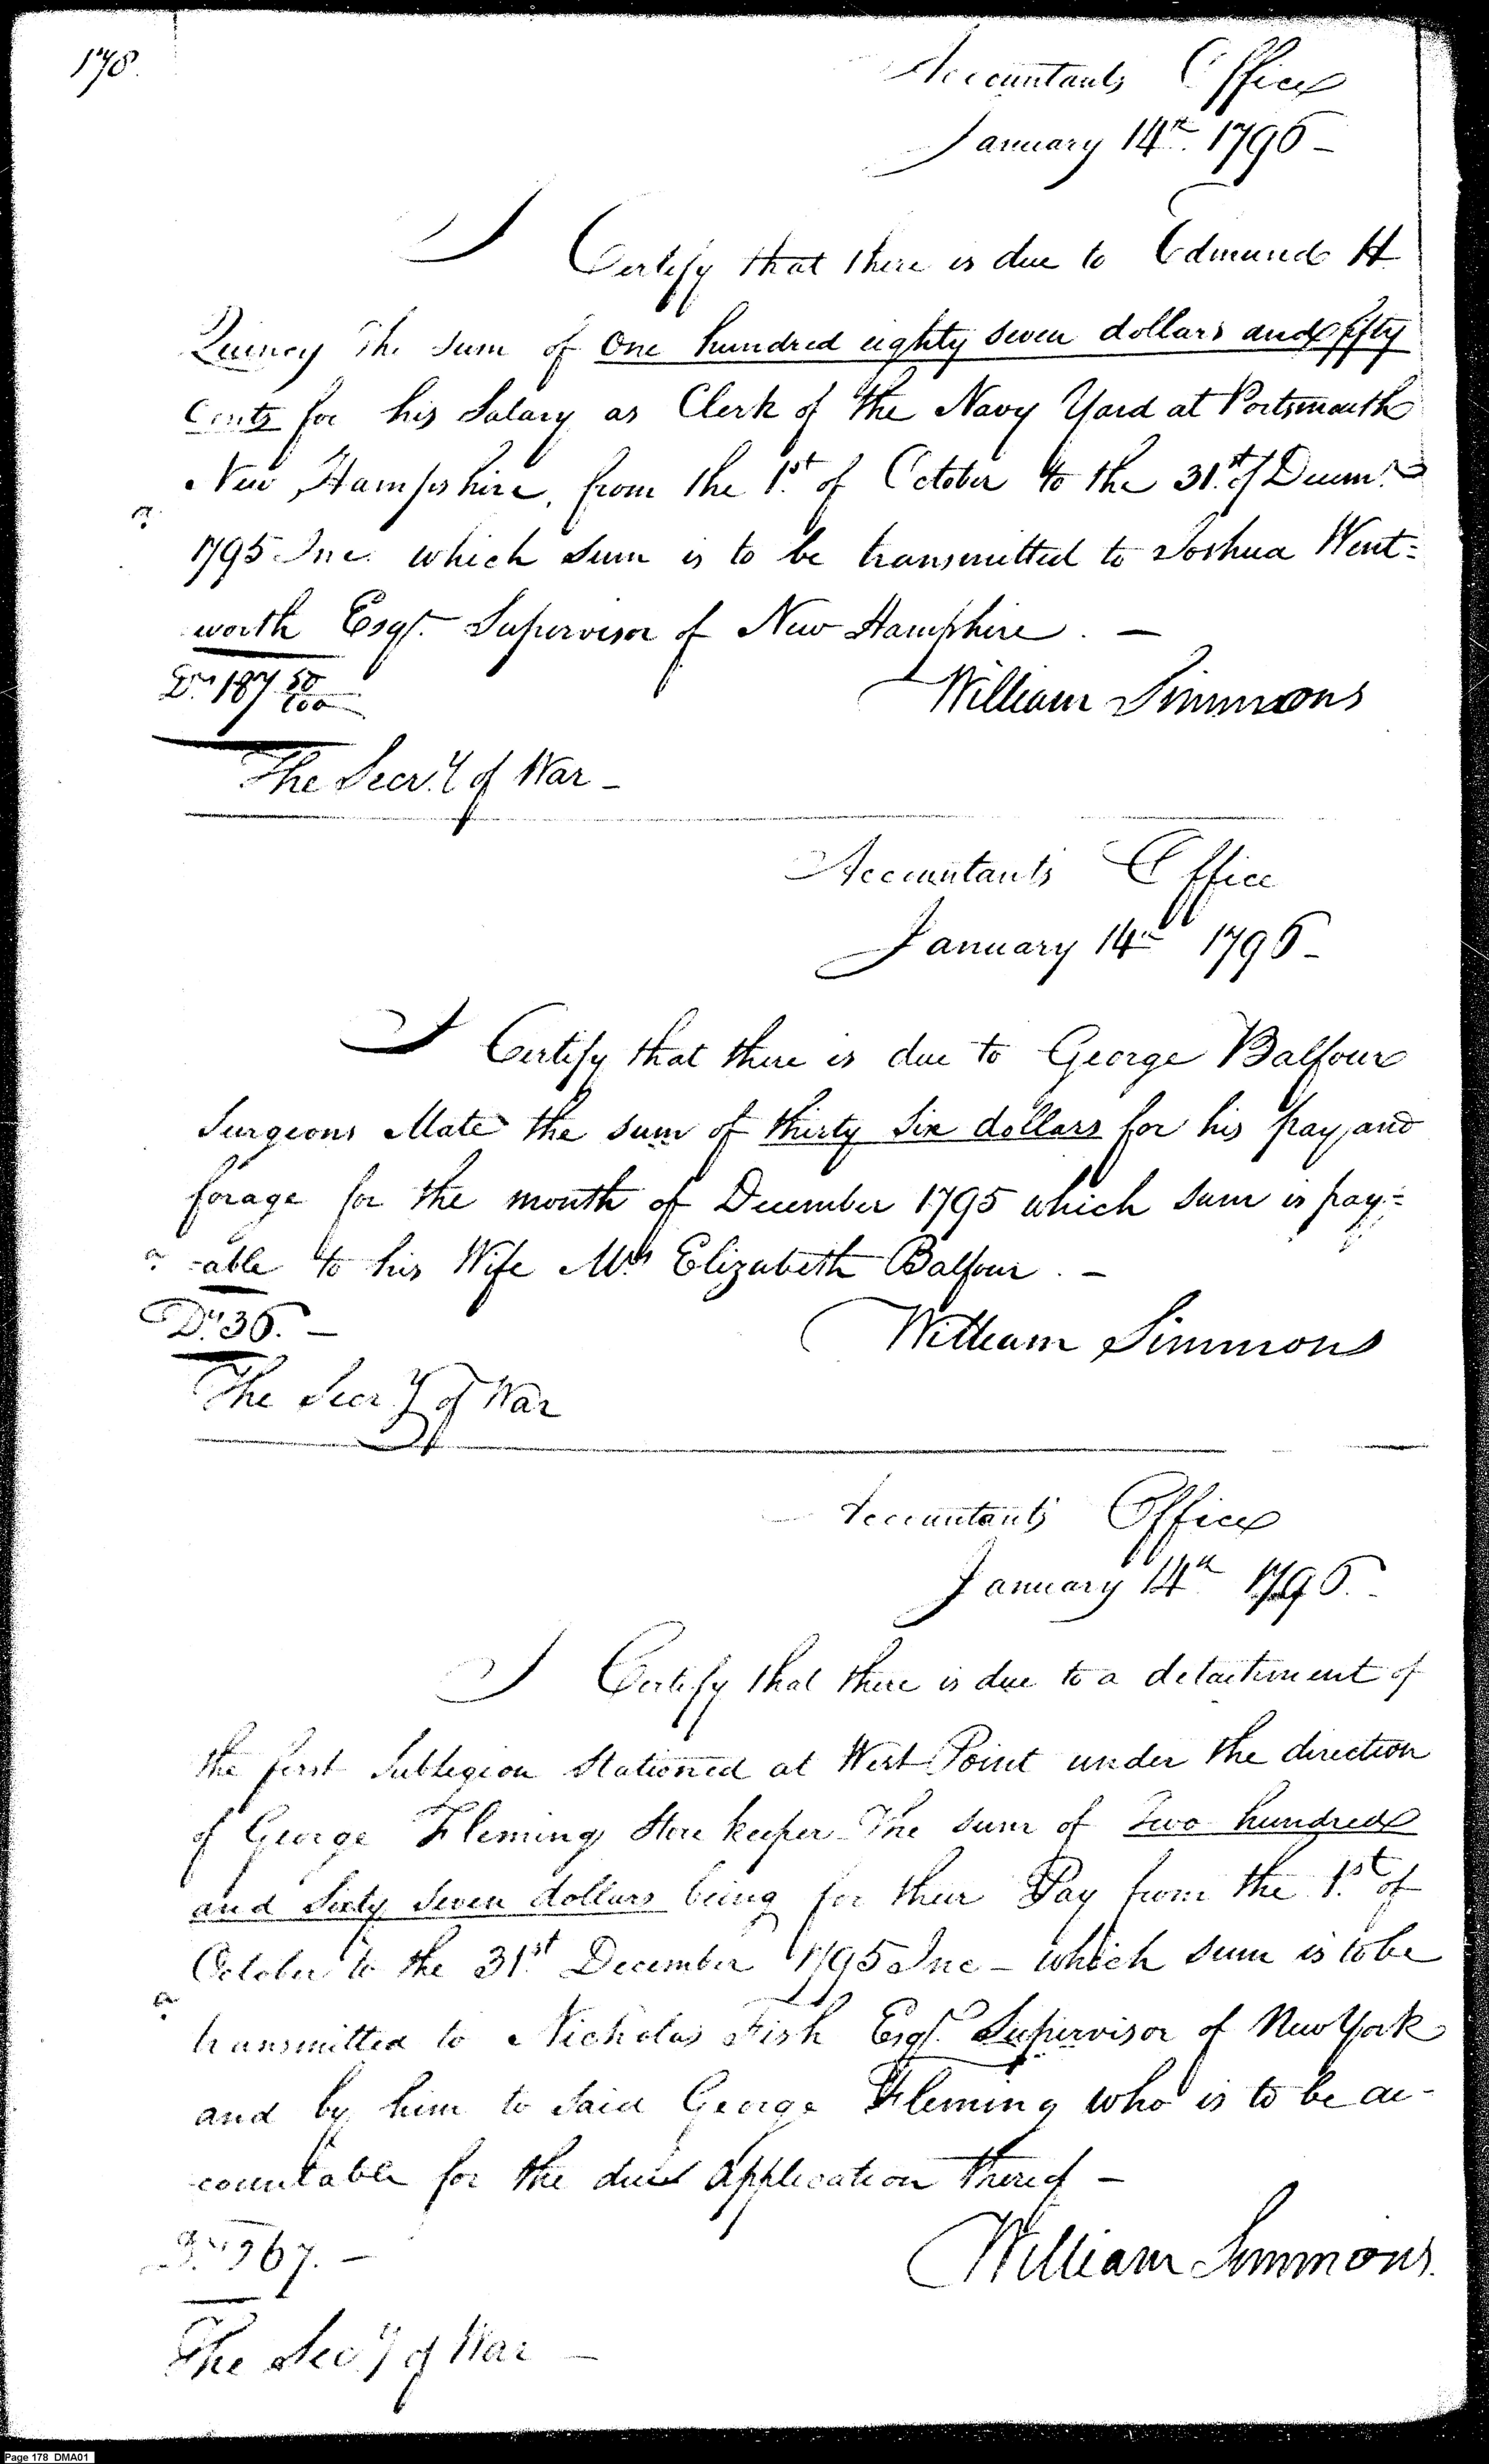 178.
Accountants Office
January 14th 1796 –
I Certify that there is due to Edmund H
Quincy The sum of One hundred eighty seven dollars and fifty
Cents for his Salary as Clerk of the Navy Yard at Portsmouth
New Hampshire, from the 1st of October to the 31st of Decemr.
1795 Inc. which sum is to be transmitted to Joshua Went=
worth Esqr. Supervisor of New Hampshire. –
Drs 187 50/100
William Simmons
The Secry of War –
Accountants Office
January 14th 1796 –
I Certify that there is due to George Balfour
Surgeons Mate the sum of thirty Six dollars for his pay and
forage for the month of December 1795 which sum is pay=
=able to his Wife Mrs Elizabeth Balfour. –
Drs 36. –
William Simmons
The Secry of War
Accountants Office
January 14th 1796. –
I Certify that there is due to a detachment of
the first Sublegion Stationed at West Point under the direction
of George Fleming Store keeper The sum of Two hundred
and Sixty Seven dollars being for their Pay from the 1st of
October to the 31st December 1795 Inc – which sum is to be
transmitted to Nicholas Fish Esqr. Supervisor of New York
and by him to said George Fleming who is to be ac-
countable for the due Application thereof –
Drs 267. –
William Simmons.
The Secy of War –
Page 178 DMA01